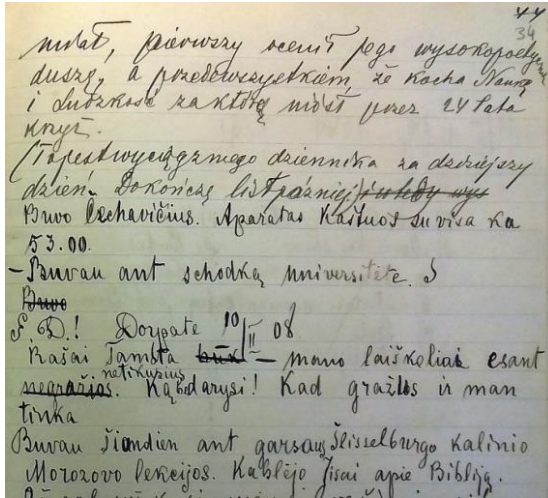 44
34
miłał, pierwszy ocenił jego wysokopoetyczną
duszę, a przedewszystkiem, że kocha Naukę
i Ludzkość za którą niósł przez 24 lata
krzyż.
(To jest wyciąg z mego dziennika za dzisiejszy
dzień. Dokończę list później) i wtedy wys
Buvo Čechavičius. Aparatas kaštuos su visa ka
53.00.
- Buvau ant schodką universitete. S
Buvo
S D.! Dorpate 10/II 08
Rašai Tamsta buk — mano laiškeliai esant
negražios. netikusius Ką bdarysi! Kad gražus ir man
tinka
Buvau šiandien ant garsaus Šlisselburgo kalinio
Morozovo lekcijos. Kalbėjo jisai apie Bibliją.